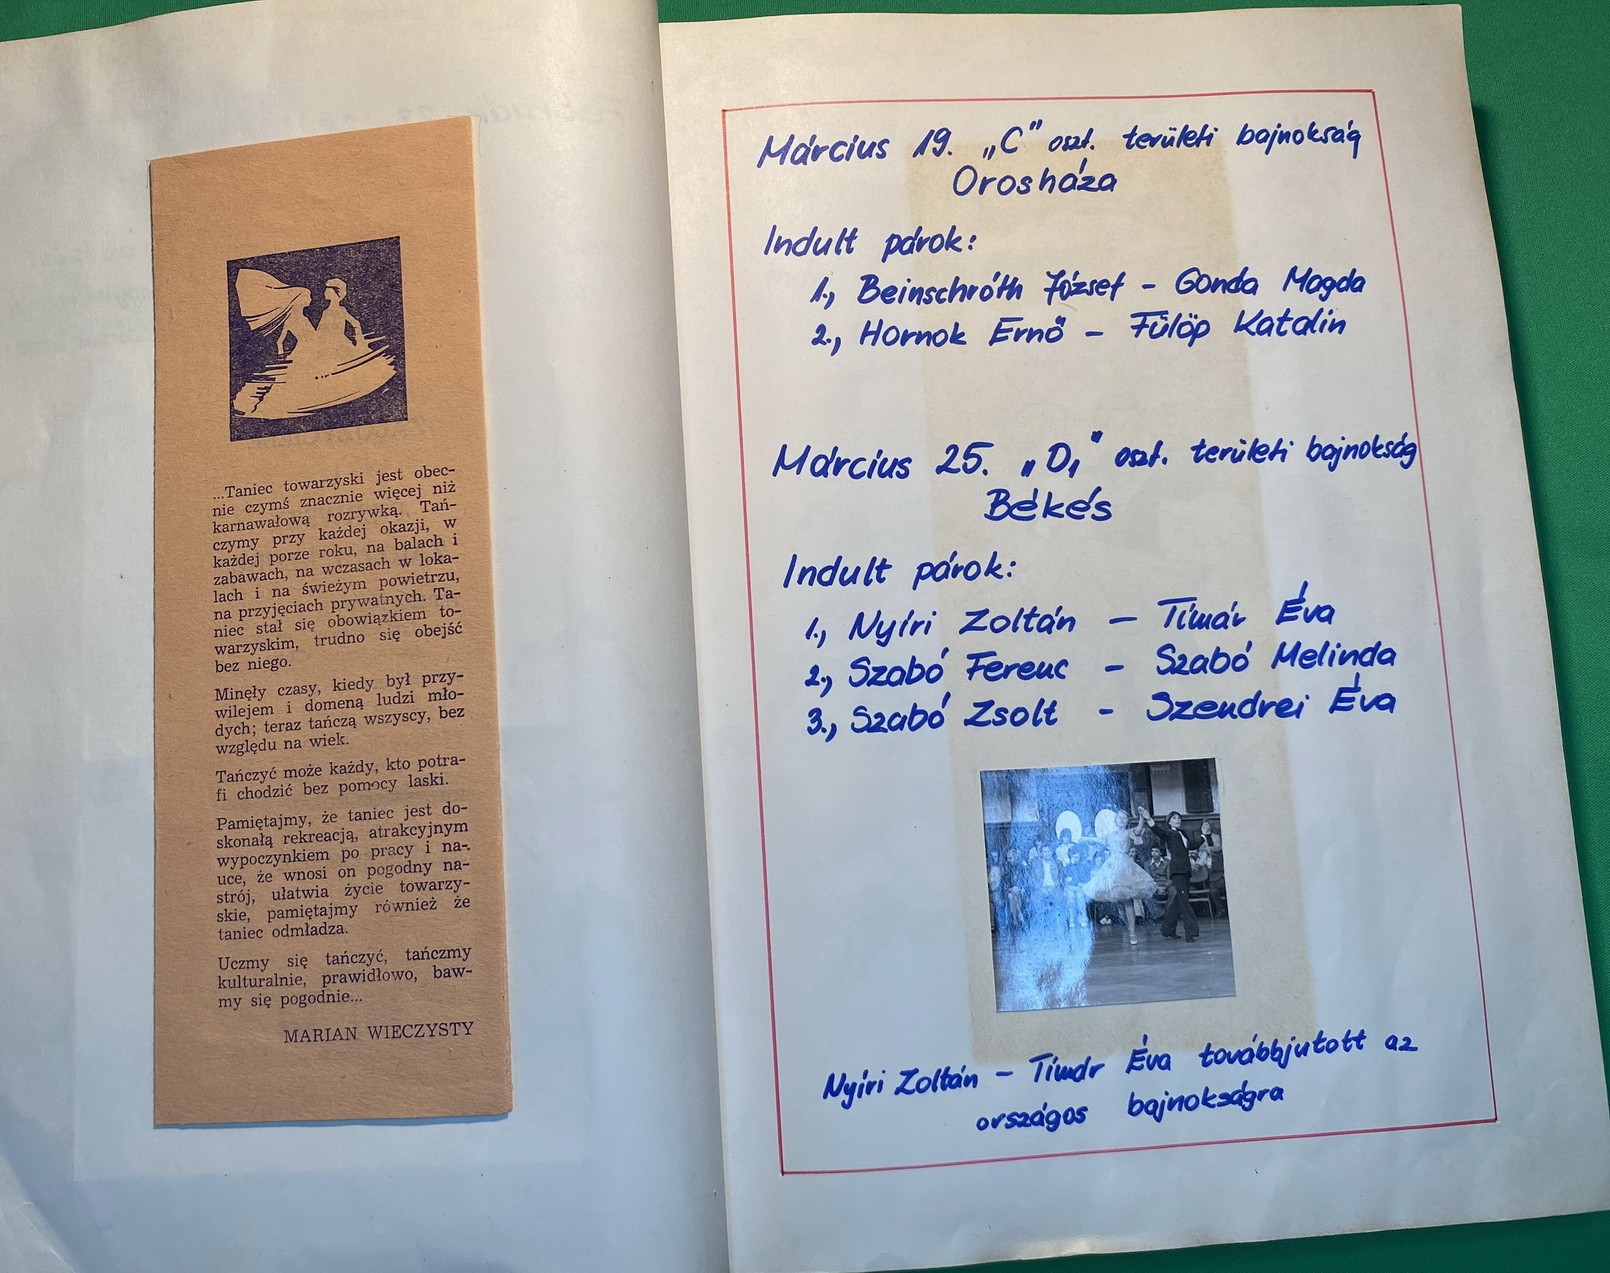 ...Taniec towarzyski jest obec-
nie czymś znacznie więcej niż
karnawałową rozrywką. Tań-
czymy przy każdej okazji, w
każdej porze roku, na balach i
zabawach, na wczasach w loka-
lach i na świeżym powietrzu,
na przyjęciach prywatnych. Ta-
niec stał się obowiązkiem to-
warzyskim, trudno się obejść
bez niego.
Minęły czasy, kiedy był przy-
wilejem i domeną ludzi mło-
dych; teraz tańczą wszyscy, bez
względu na wiek.
Tańczyć może każdy, kto potra-
fi chodzić bez pomocy laski.
Pamiętajmy, że taniec jest do-
skonałą rekreacją, atrakcyjnym
wypoczynkiem po pracy i na-
uce, że wnosi on pogodny na-
strój, ułatwia życie towarzy-
skie, pamiętajmy również że
taniec odmładza.
Uczmy się tańczyć, tańczmy
kulturalnie, prawidłowo, baw-
my się pogodnie...
MARIAN WIECZYSTY
Március 19. „C" oszt. területi bajnokság
Orosháza
Indult párok:
1., Beinschróth József - Gonda Magda
2., Hornok Ernő - Fülöp Katalin
Március 25. „D1" oszt. területi bajnokság
Békés
Indult párok:
1., Nyíri Zoltán - Tímár Éva
2., Szabó Ferenc - Szabó Melinda
3., Szabó Zsolt - Szendrei Éva
Nyíri Zoltán - Tímár Éva továbbjutott az
országos bajnokságra